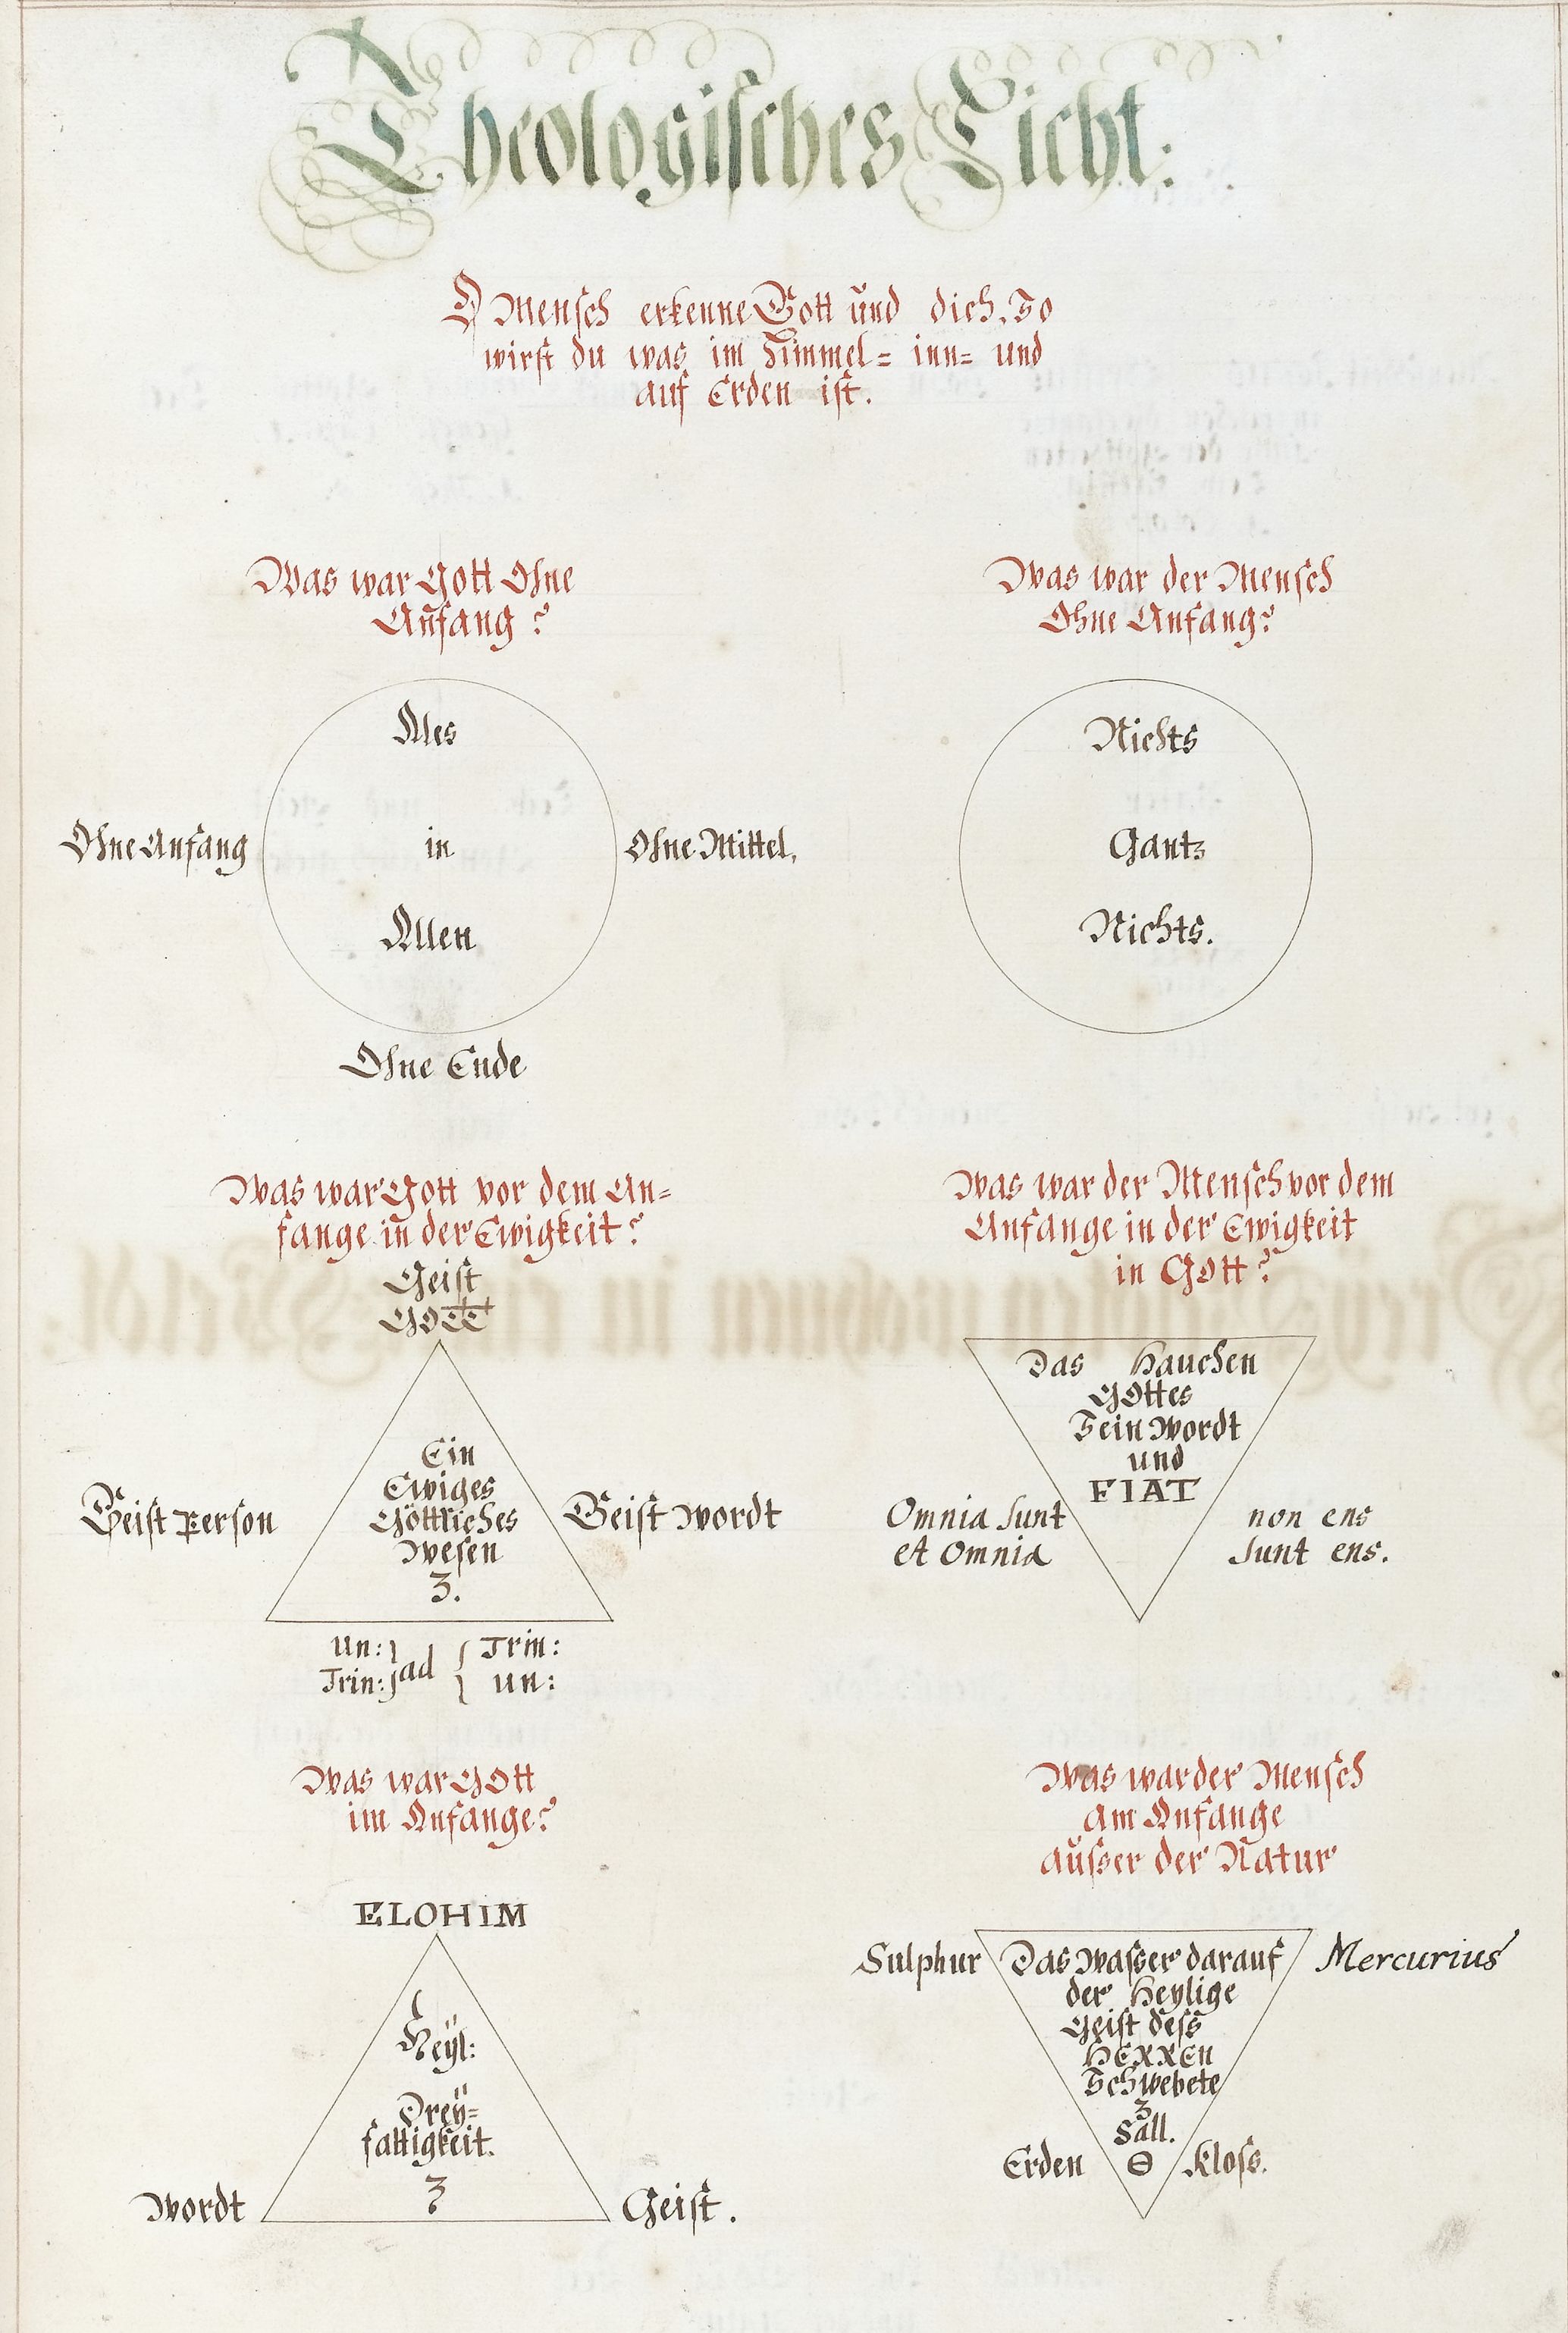 Theologisches Licht:
O Mensch erkenne Gott und dich, So
wirst du was im Himmel= inn= und
auf Erden ist.
Was war Gott Ohne
Anfang?
Alles
Ohne Anfang in Ohne Mittel,
Allen
Ohne Ende
Was war der Mensch
Ohne Anfang?
Nichts
Gantz
Nichts.
Was war Gott vor dem An=
fange in der Ewigkeit?
Geist
GOTT
Ein
Ewiges
Geist Person Göttliches Geist Wordt
Wesen
3.
Un: } ad { Trin:
Trin: } ad { Un:
Was war der Mensch vor dem
Anfange in der Ewigkeit
in Gott?
Das Hauchen
GOttes
Sein Wordt
und
FIAT
Omnia sunt non ens
et Omnia sunt ens.
Was war GOtt
im Anfange?
ELOHIM
Heÿl:
Dreÿ=
faltigkeit.
3
Wordt Geist.
Was war der Mensch
am Anfange
ausser der Natur
Sulphur Das Wasser darauf Mercurius
der Heylige
Geist dess
HERREN
Schwebete
3
Sall.
Erden ⊖ Kloss.